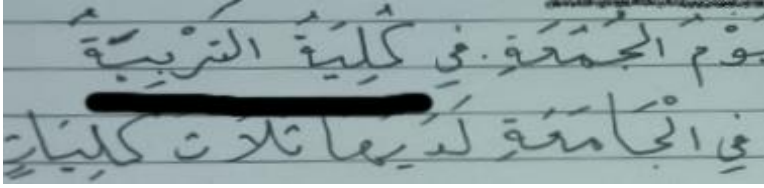 يَوْمُ الْجُمُعَةِ. فِي كُلِّيَةُ التَرْبِيَّةُ
فِي الْجَامَعَةِ لَدَيهَا ثَلَاث كُلِيَاتٍ